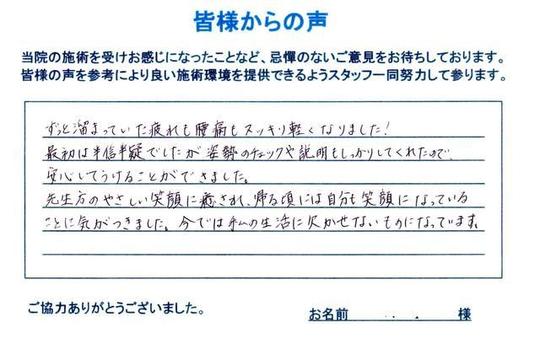 皆様からの声
当院の施術を受けお感じになったことなど、忌憚のないご意見をお待ちしております。
皆様の声を参考により良い施術環境を提供できるようスタッフ一同努力して参ります。
ずっと溜まっていた疲れも腰痛もスッキリ軽くなりました!
最初は半信半疑でしたが姿勢のチェックや説明もしっかりしてくれたので、
安心してうけることができました。
先生方のやさしい笑顔に癒され、帰る頃には自分も笑顔になっている
ことに気がつきました。今では私の生活に欠かせないものになっています。
ご協力ありがとうございました。
お名前 様